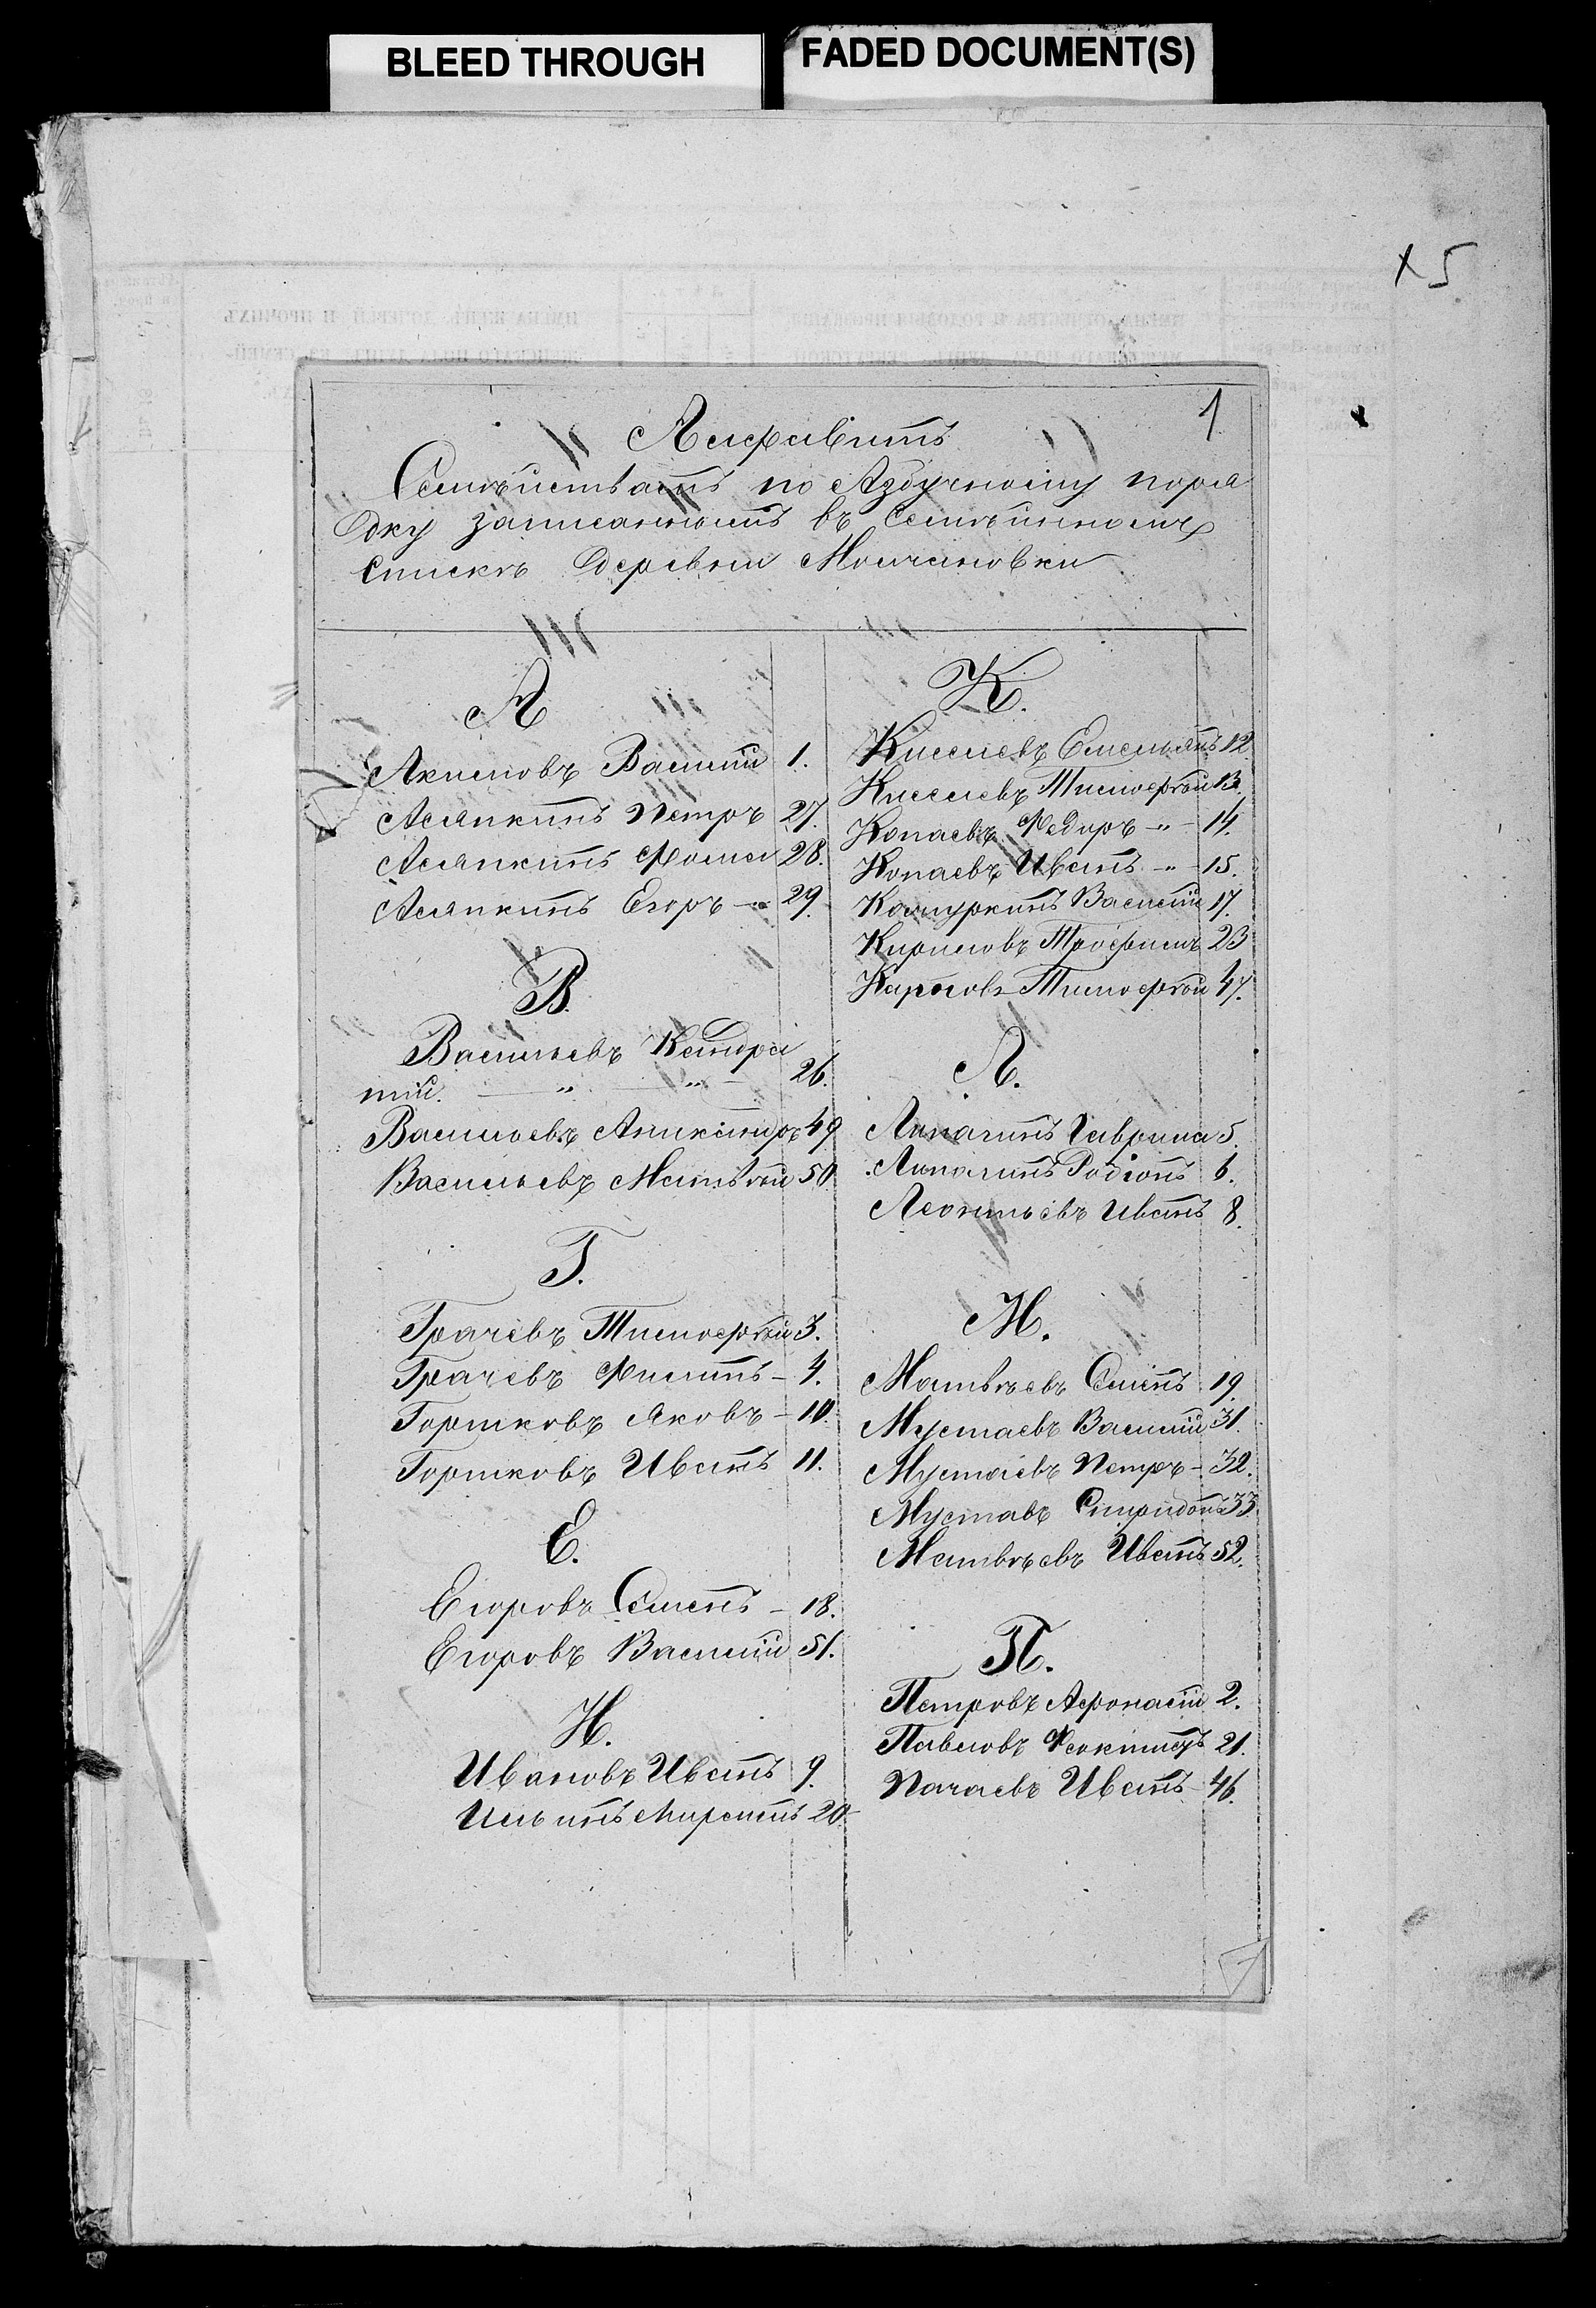 BLEED THROUGH
FADED DOCUMENT(S)
X 5
1
Алфавитъ
Семѣйствамъ по Азбучному поря
дку записаннымъ въ Семѣйномъ
спискѣ деревни Молчановки
А
Акимовъ Василий 1.
Асяпкинъ Петръ 27.
Асяпкинъ Фома 28.
Асяпкинъ Егоръ -„- 29.
В.
Васильевъ Кондра
тий. — „ — „ — 26.
Васильевъ Аникандръ 49
Васильевъ Матвѣй 50
Г.
Грачевъ Тимофѣй 3.
Грачевъ Филипъ - 4.
Горшковъ Яковъ - 10.
Горшковъ Иванъ 11.
Е.
Егоровъ Семенъ - 18.
Егоровъ Василий 51.
И.
Ивановъ Иванъ 9.
Ильинъ 20.
К.
Киселевъ Емельянъ 12
Киселевъ Тимофѣй 13.
Копаевъ Федоръ -„- 14.
Копаевъ Иванъ -„- 15.
Василий 17.
Кириловъ Трофимъ 23
Карповъ Тимофѣй 47.
Л.
Липатинъ Гаврила 5.
Липатинъ Родіонъ 6.
Леонтьевъ Иванъ 8.
М.
Матвѣевъ Семенъ 19.
Мустаевъ Василий 31.
Мустаевъ Петръ - 32.
Муставъ Спиридонъ 33.
Матвѣевъ Иванъ 52.
П.
Петровъ Афонасій 2.
Павловъ Феоктистъ 21.
Пачаевъ Иванъ - 46.